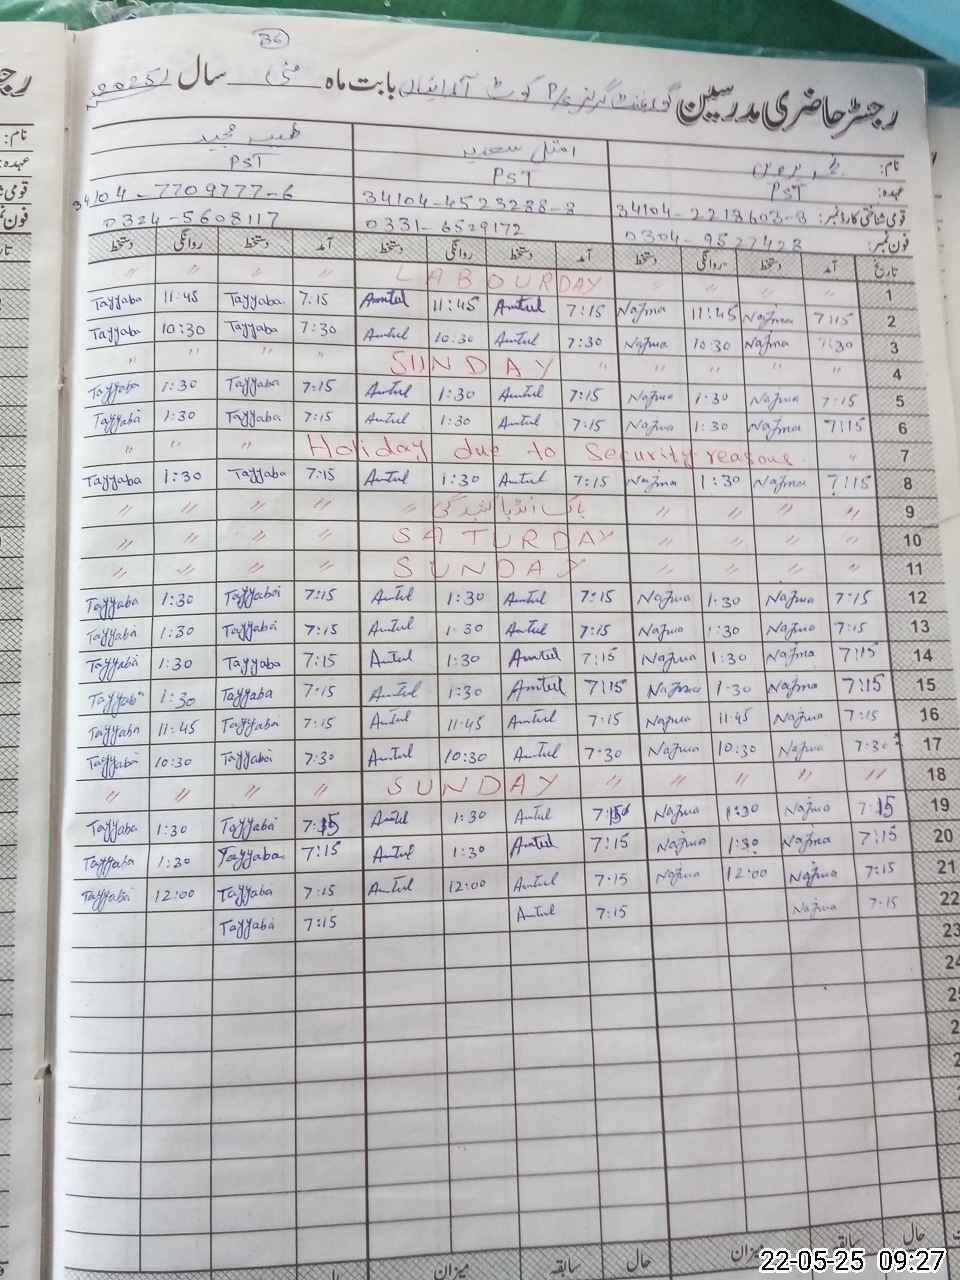 36
رجسٹر حاضری مدرسین گورنمنٹ گرلز P/S کوٹ بابت ماہ مئی سال 2025
نام: امتل سعدیہ طیبہ مجید
عہدہ: PST PST PST
قومی شناختی کارڈ نمبر: 34104-2218603-8 34104-4523288-8 34104-7709777-6
فون نمبر: 0304-9527428 0331-6529172 0324-5608117
تاریخ آمد دستخط روانگی دستخط آمد دستخط روانگی دستخط آمد دستخط روانگی دستخط
〃 〃 〃 〃 LABOUR DAY 〃 〃 〃 〃 1
Tayyaba 11:45 Tayyaba 7:15 Amtul 11:45 Amtul 7:15 Najma 11:45 Najma 7:15 2
Tayyaba 10:30 Tayyaba 7:30 Amtul 10:30 Amtul 7:30 Najma 10:30 Najma 7:30 3
〃 〃 〃 〃 SUNDAY 〃 〃 〃 〃 〃 4
Tayyaba 1:30 Tayyaba 7:15 Amtul 1:30 Amtul 7:15 Najma 1:30 Najma 7:15 5
Tayyaba 1:30 Tayyaba 7:15 Amtul 1:30 Amtul 7:15 Najma 1:30 Najma 7:15 6
〃 〃 〃 Holiday due to Security reasons 〃 7
Tayyaba 1:30 Tayyaba 7:15 Amtul 1:30 Amtul 7:15 Najma 1:30 Najma 7:15 8
〃 〃 〃 〃 〃 پاک انڈیا کشیدگی 〃 〃 〃 〃 9
〃 〃 〃 〃 SATURDAY 〃 〃 〃 〃 10
〃 〃 〃 〃 SUNDAY 〃 〃 〃 〃 11
Tayyaba 1:30 Tayyaba 7:15 Amtul 1:30 Amtul 7:15 Najma 1:30 Najma 7:15 12
Tayyaba 1:30 Tayyaba 7:15 Amtul 1:30 Amtul 7:15 Najma 1:30 Najma 7:15 13
Tayyaba 1:30 Tayyaba 7:15 Amtul 1:30 Amtul 7:15 Najma 1:30 Najma 7:15 14
Tayyaba 1:30 Tayyaba 7:15 Amtul 1:30 Amtul 7:15 Najma 1:30 Najma 7:15 15
Tayyaba 11:45 Tayyaba 7:15 Amtul 11:45 Amtul 7:15 Najma 11:45 Najma 7:15 16
Tayyaba 10:30 Tayyaba 7:30 Amtul 10:30 Amtul 7:30 Najma 10:30 Najma 7:30 17
〃 〃 〃 〃 SUNDAY 〃 〃 〃 〃 〃 18
Tayyaba 1:30 Tayyaba 7:15 Amtul 1:30 Amtul 7:15 Najma 1:30 Najma 7:15 19
Tayyaba 1:30 Tayyaba 7:15 Amtul 1:30 Amtul 7:15 Najma 1:30 Najma 7:15 20
Tayyaba 12:00 Tayyaba 7:15 Amtul 12:00 Amtul 7:15 Najma 12:00 Najma 7:15 21
Tayyaba 7:15 Amtul 7:15 Najma 7:15 22
23
24
حال سابقہ میزان حال سابقہ میزان حال
22-05-25 09:27